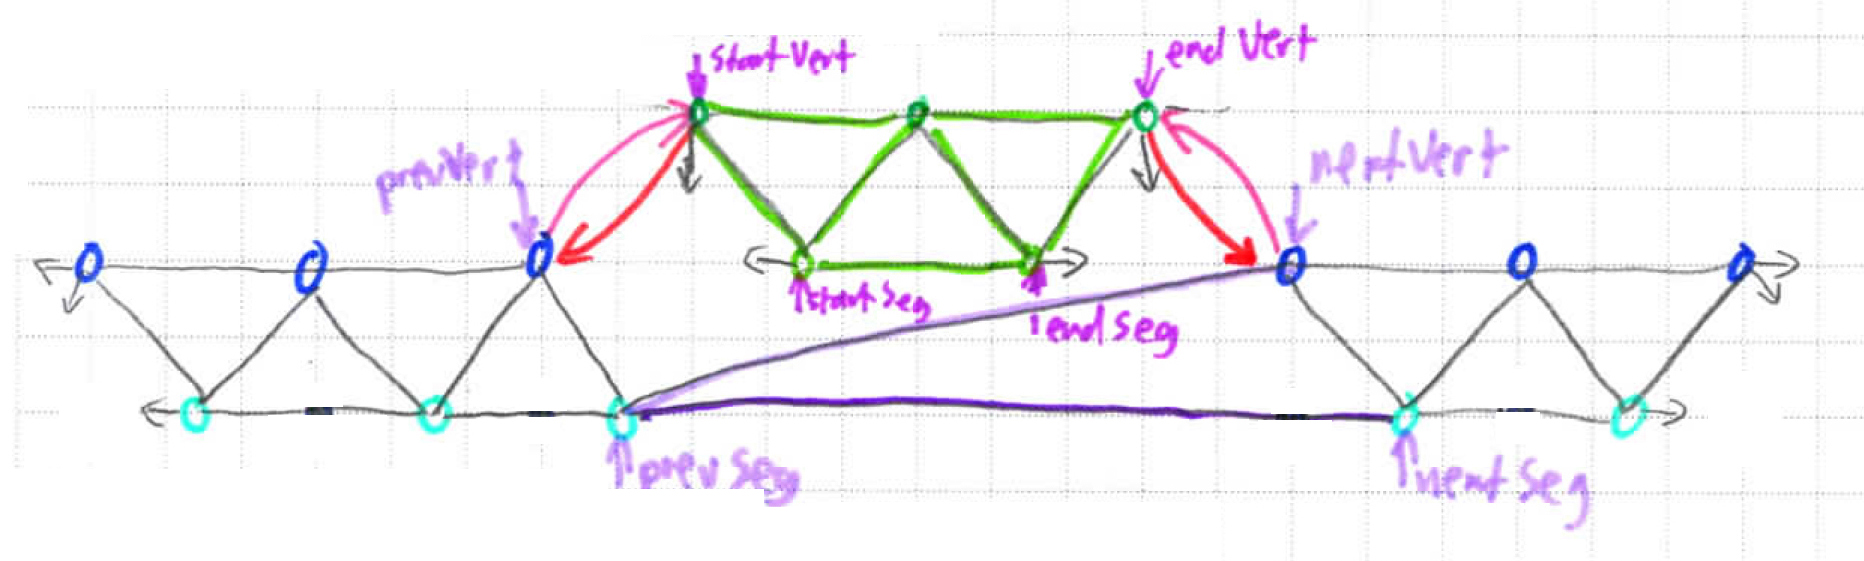 startVert
endVert
prevVert
nextVert
startSeg
endSeg
prevSeg
nextSeg